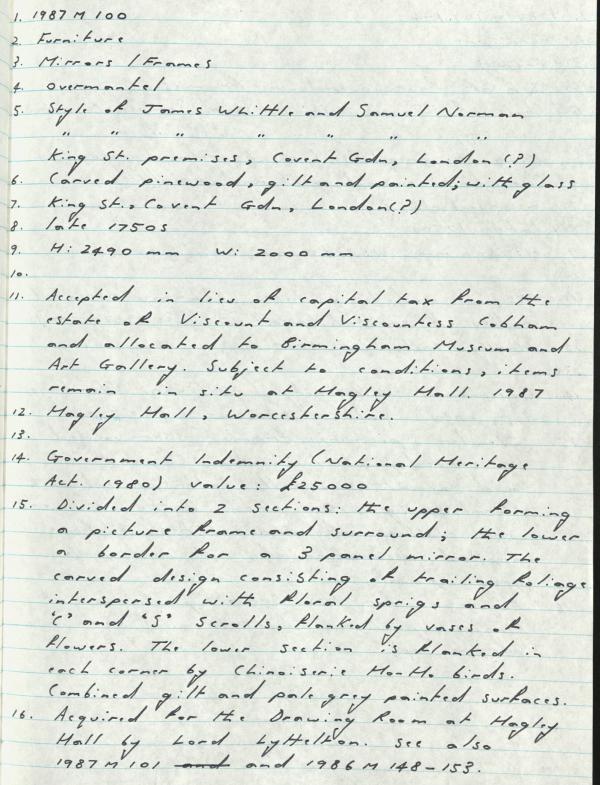 1. 1987 M 100
2. Furniture
3. Mirrors / Frames
4. overmantel
5. Style of James Whittle and Samuel Norman
" " " " " " "
King St. premises, Covent Gdn, London (?)
6. Carved pinewood, gilt and painted; with glass
7. King St., Covent Gdn, London (?)
8. late 1750s
9. H: 2490 mm W: 2000 mm
10.
11. Accepted in lieu of capital tax from the
estate of Viscount and Viscountess Cobham
and allocated to Birmingham Museum and
Art Gallery. Subject to conditions, items
remain in situ at Hagley Hall. 1987
12. Hagley Hall, Worcestershire.
13.
14. Government Indemnity (National Heritage
Act. 1980) value: £25000
15. Divided into 2 sections: the upper forming
a picture frame and surround; the lower
a border for a 3 panel mirror. The
carved design consisting of trailing foliage
interspersed with floral sprigs and
'C' and 'S' scrolls, flanked by vases of
flowers. The lower section is flanked in
each corner by Chinoiserie Ho-Ho birds.
Combined gilt and pale grey painted surfaces.
16. Acquired for the Drawing Room at Hagley
Hall by Lord Lyttelton. see also
1987 M 101 and and 1986 M 148-153.